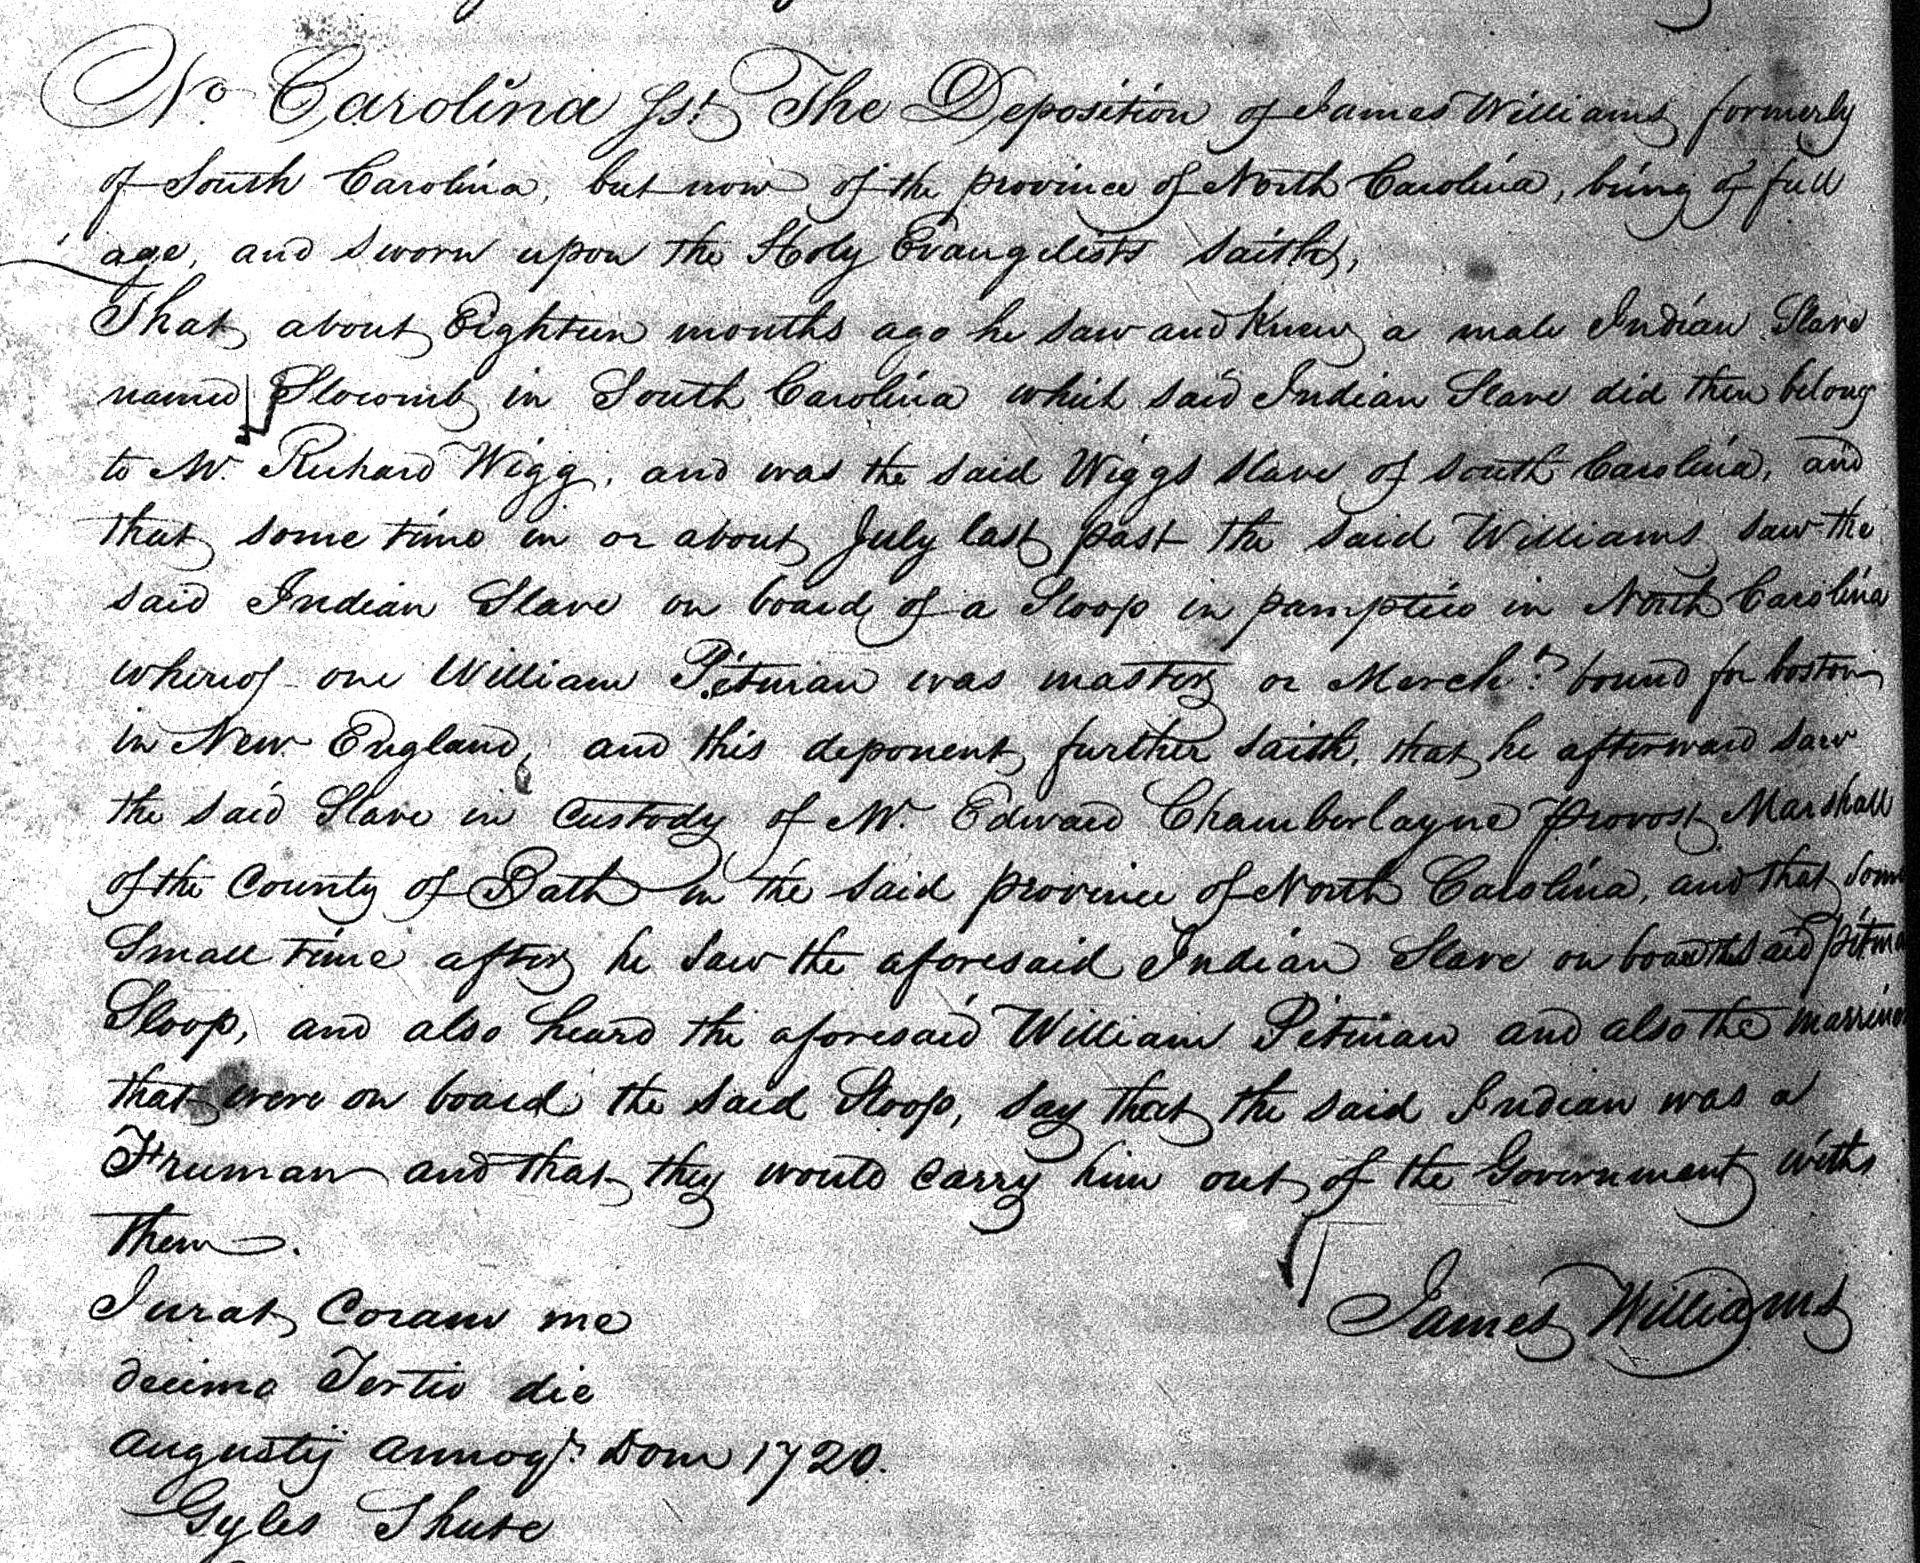 No. Carolina Ss. The Deposition of James Williams formerly
of South Carolina, but now of the province of North Carolina, being of full
age, and sworn upon the Holy Evangelists saith,
That about Eighteen months ago he saw and Knew a male Indian Slave
named Slocomb in South Carolina which said Indian Slave did then belong
to Mr. Richard Wigg, and was the said Wiggs slave of South Carolina, and
that some time in or about July last past the said Williams saw the
said Indian Slave on board of a Sloop in pamptico in North Carolina
whereof one William Pitman was master or Merch.t bound for boston
in New England, and this deponent further saith, that he afterward saw
the said Slave in Custody of Mr. Edward Chamberlayne Provost Marshall
of the County of Bath in the said province of North Carolina, and that some
Small time after he saw the aforesaid Indian Slave on board the said
Sloop, and also heard the aforesaid William Pitman and also the
that were on board the said Sloop, say that the said Indian was a
Freeman and that they would carry him out of the Government with
them.
Jurat Coram me
decimo Tertio die
Augustij annoq.e Dom 1720.
Gyles Shute
James Williams